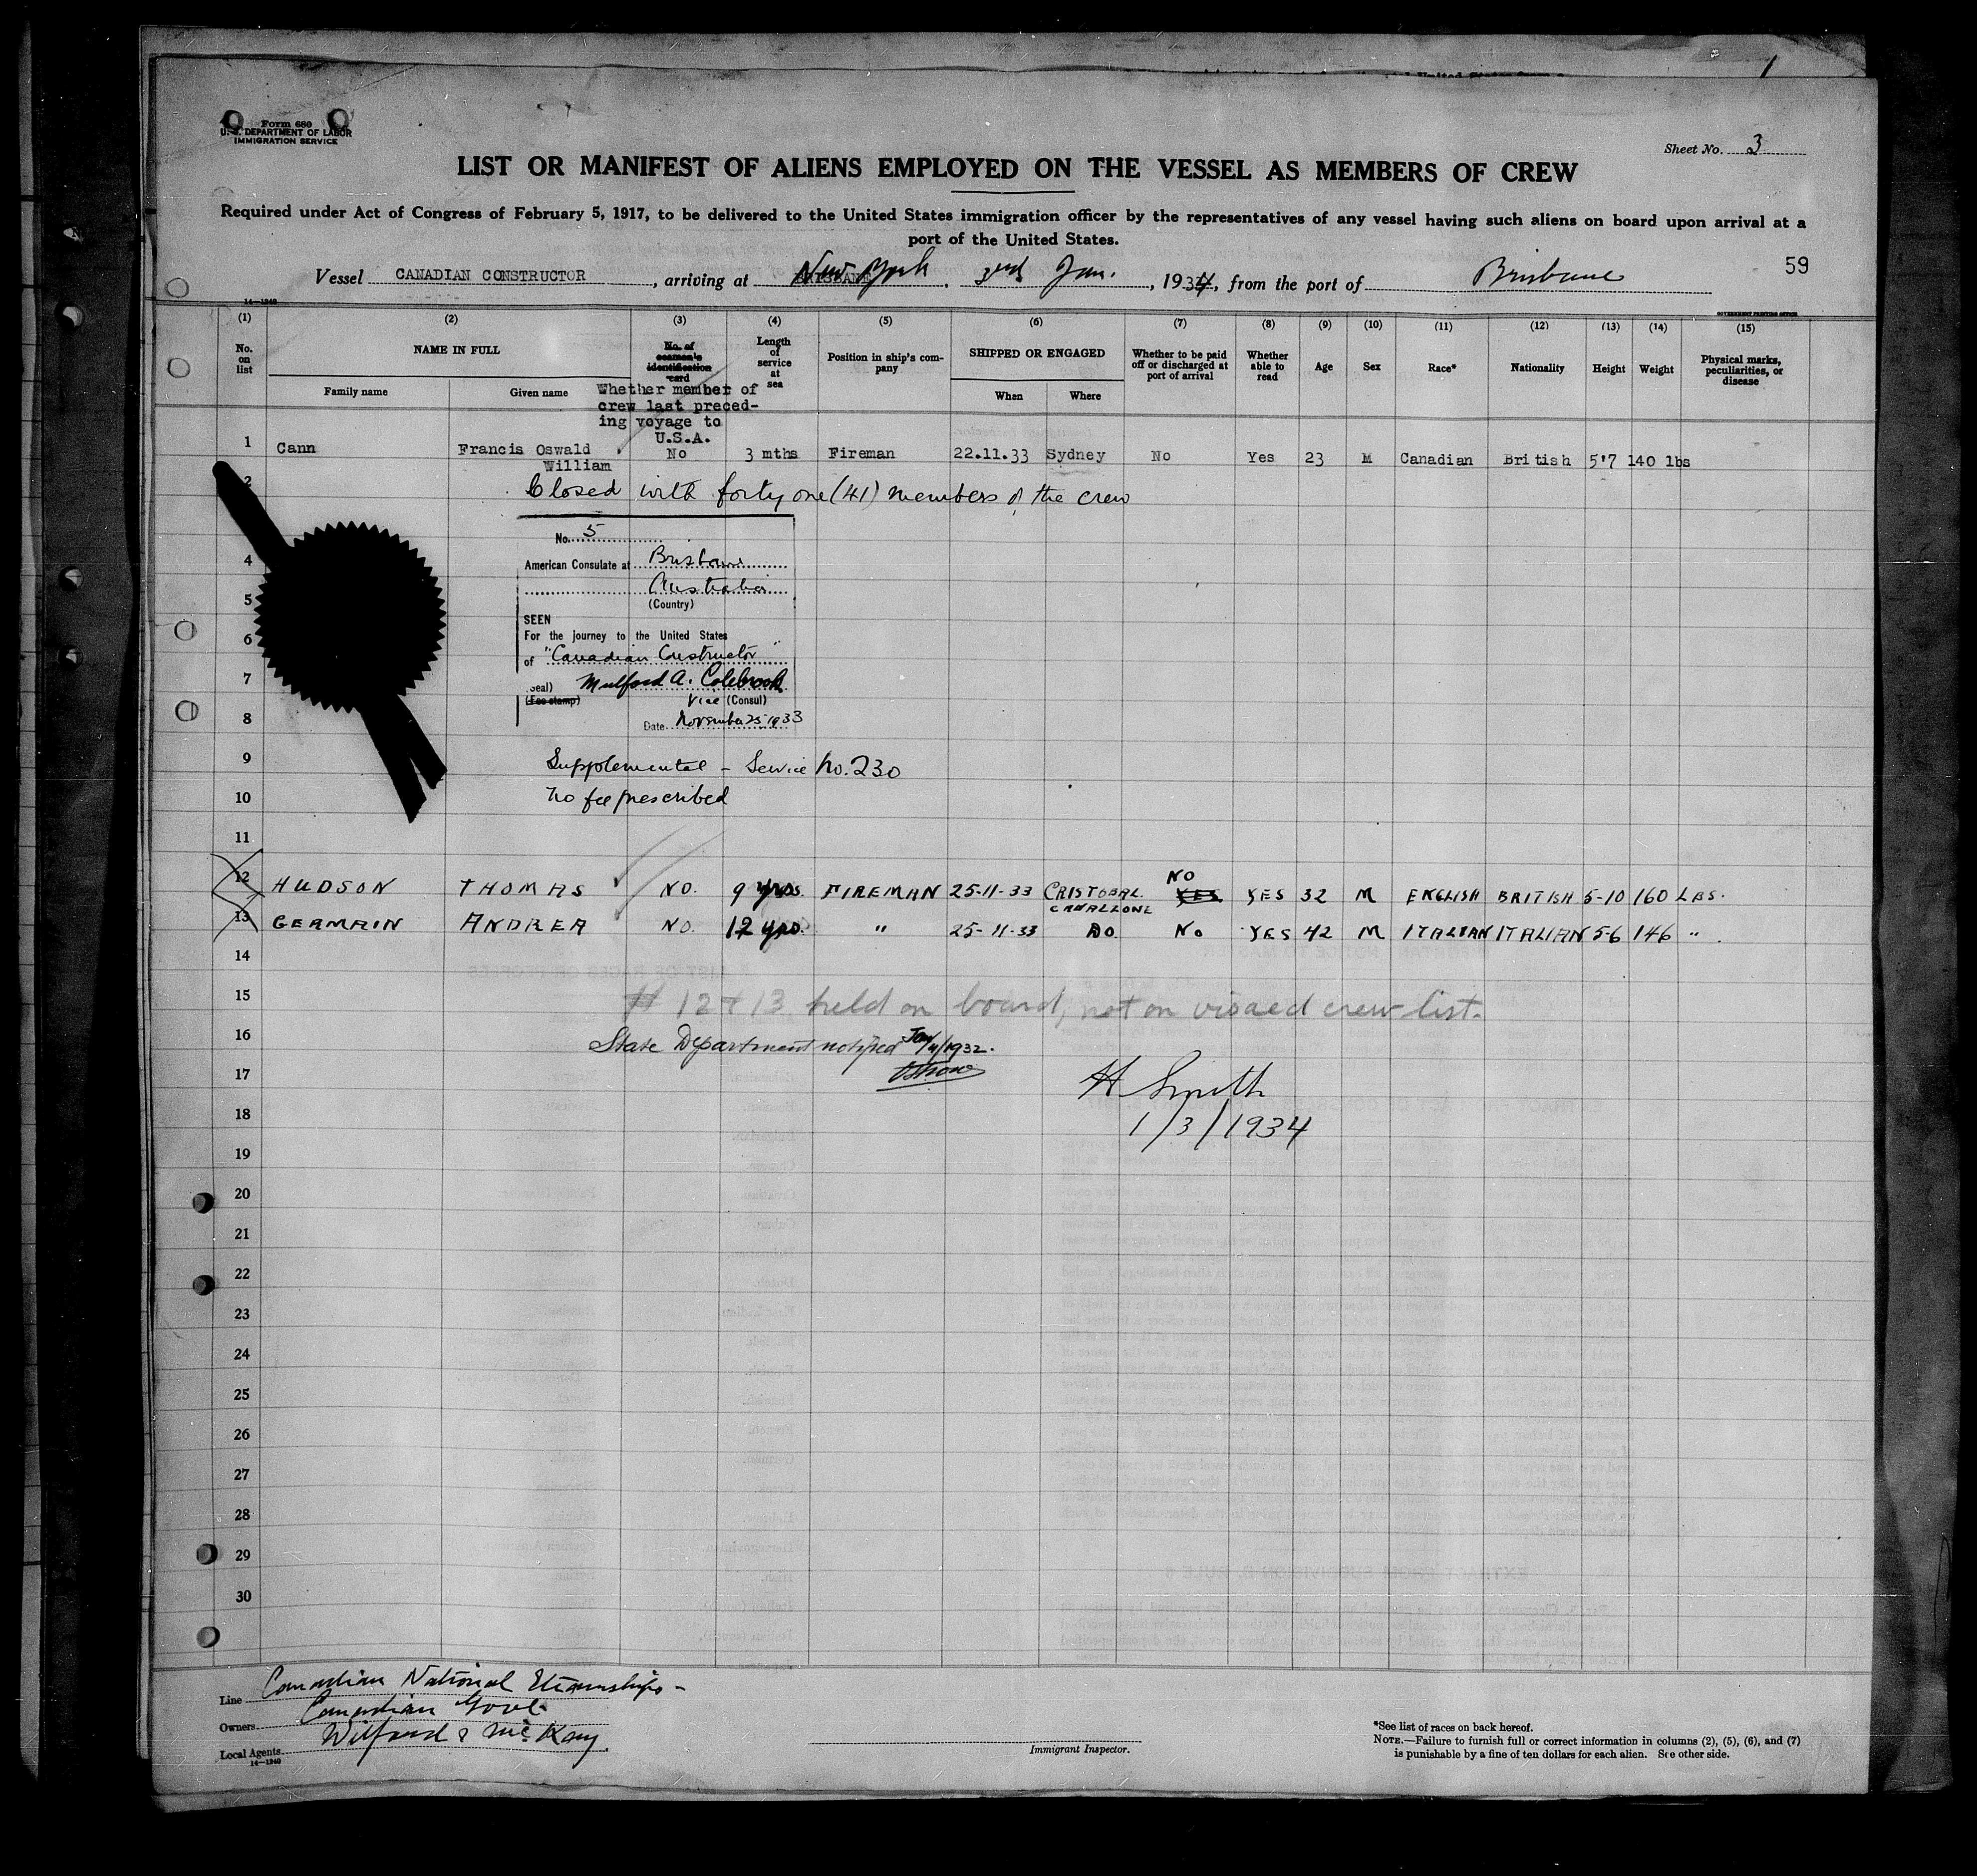 1
Form 680
U. S. DEPARTMENT OF LABOR
IMMIGRATION SERVICE
Sheet No. 3
LIST OR MANIFEST OF ALIENS EMPLOYED ON THE VESSEL AS MEMBERS OF CREW
Required under Act of Congress of February 5, 1917, to be delivered to the United States immigration officer by the representatives of any vessel having such aliens on board upon arrival at a
port of the United States.
59
Vessel CANADIAN CONSTRUCTOR, arriving at BRISBANE New York, 3rd Jan., 1934, from the port of Brisbane
14—1240
GOVERNMENT PRINTING OFFICE
(1) (2) (3) (4) (5) (6) (7) (8) (9) (10) (11) (12) (13) (14) (15)
No. on list NAME IN FULL No. of seamen's identification card Length of service at sea Position in ship's company SHIPPED OR ENGAGED Whether to be paid off or discharged at port of arrival Whether able to read Age Sex Race* Nationality Height Weight Physical marks, peculiarities, or disease
Family name Given name When Where
Whether member of
crew last preced-
ing voyage to
U.S.A.
1 Cann Francis Oswald No 3 mths Fireman 22.11.33 Sydney No Yes 23 M Canadian British 5'7 140 lbs
William
2 Closed with forty one (41) members of the crew
No. 5
4 American Consulate at Brisbane
Australia
5 (Country)
SEEN
6 For the journey to the United States
of "Canadian Constructor"
7 Seal) Mulford A. Colebrook
(Fee stamp) Vice (Consul)
8 Date November 25 1933
9 Supplemental - Service No. 230
10 No fee prescribed
11
NO
12 HUDSON THOMAS NO. 9 yrs. FIREMAN 25-11-33 CRISTOBAL YES YES 32 M ENGLISH BRITISH 5-10 160 LBS.
CANAL ZONE
13 GERMAIN ANDREA NO. 12 yrs. " 25-11-33 DO. NO YES 42 M ITALIAN ITALIAN 5-6 146 "
14
15 # 12 & 13 held on board, not on visaed crew list.
16 State Department notified Jan/4/1932.
17 H Smith
18 1/3/1934
19
20
21
22
23
24
25
26
27
28
29
30
Line Canadian National Steamships -
Owners Canadian Govt.
Local Agents Wilford & McKay
14—1240
Immigrant Inspector.
*See list of races on back hereof.
NOTE.—Failure to furnish full or correct information in columns (2), (5), (6), and (7)
is punishable by a fine of ten dollars for each alien. See other side.